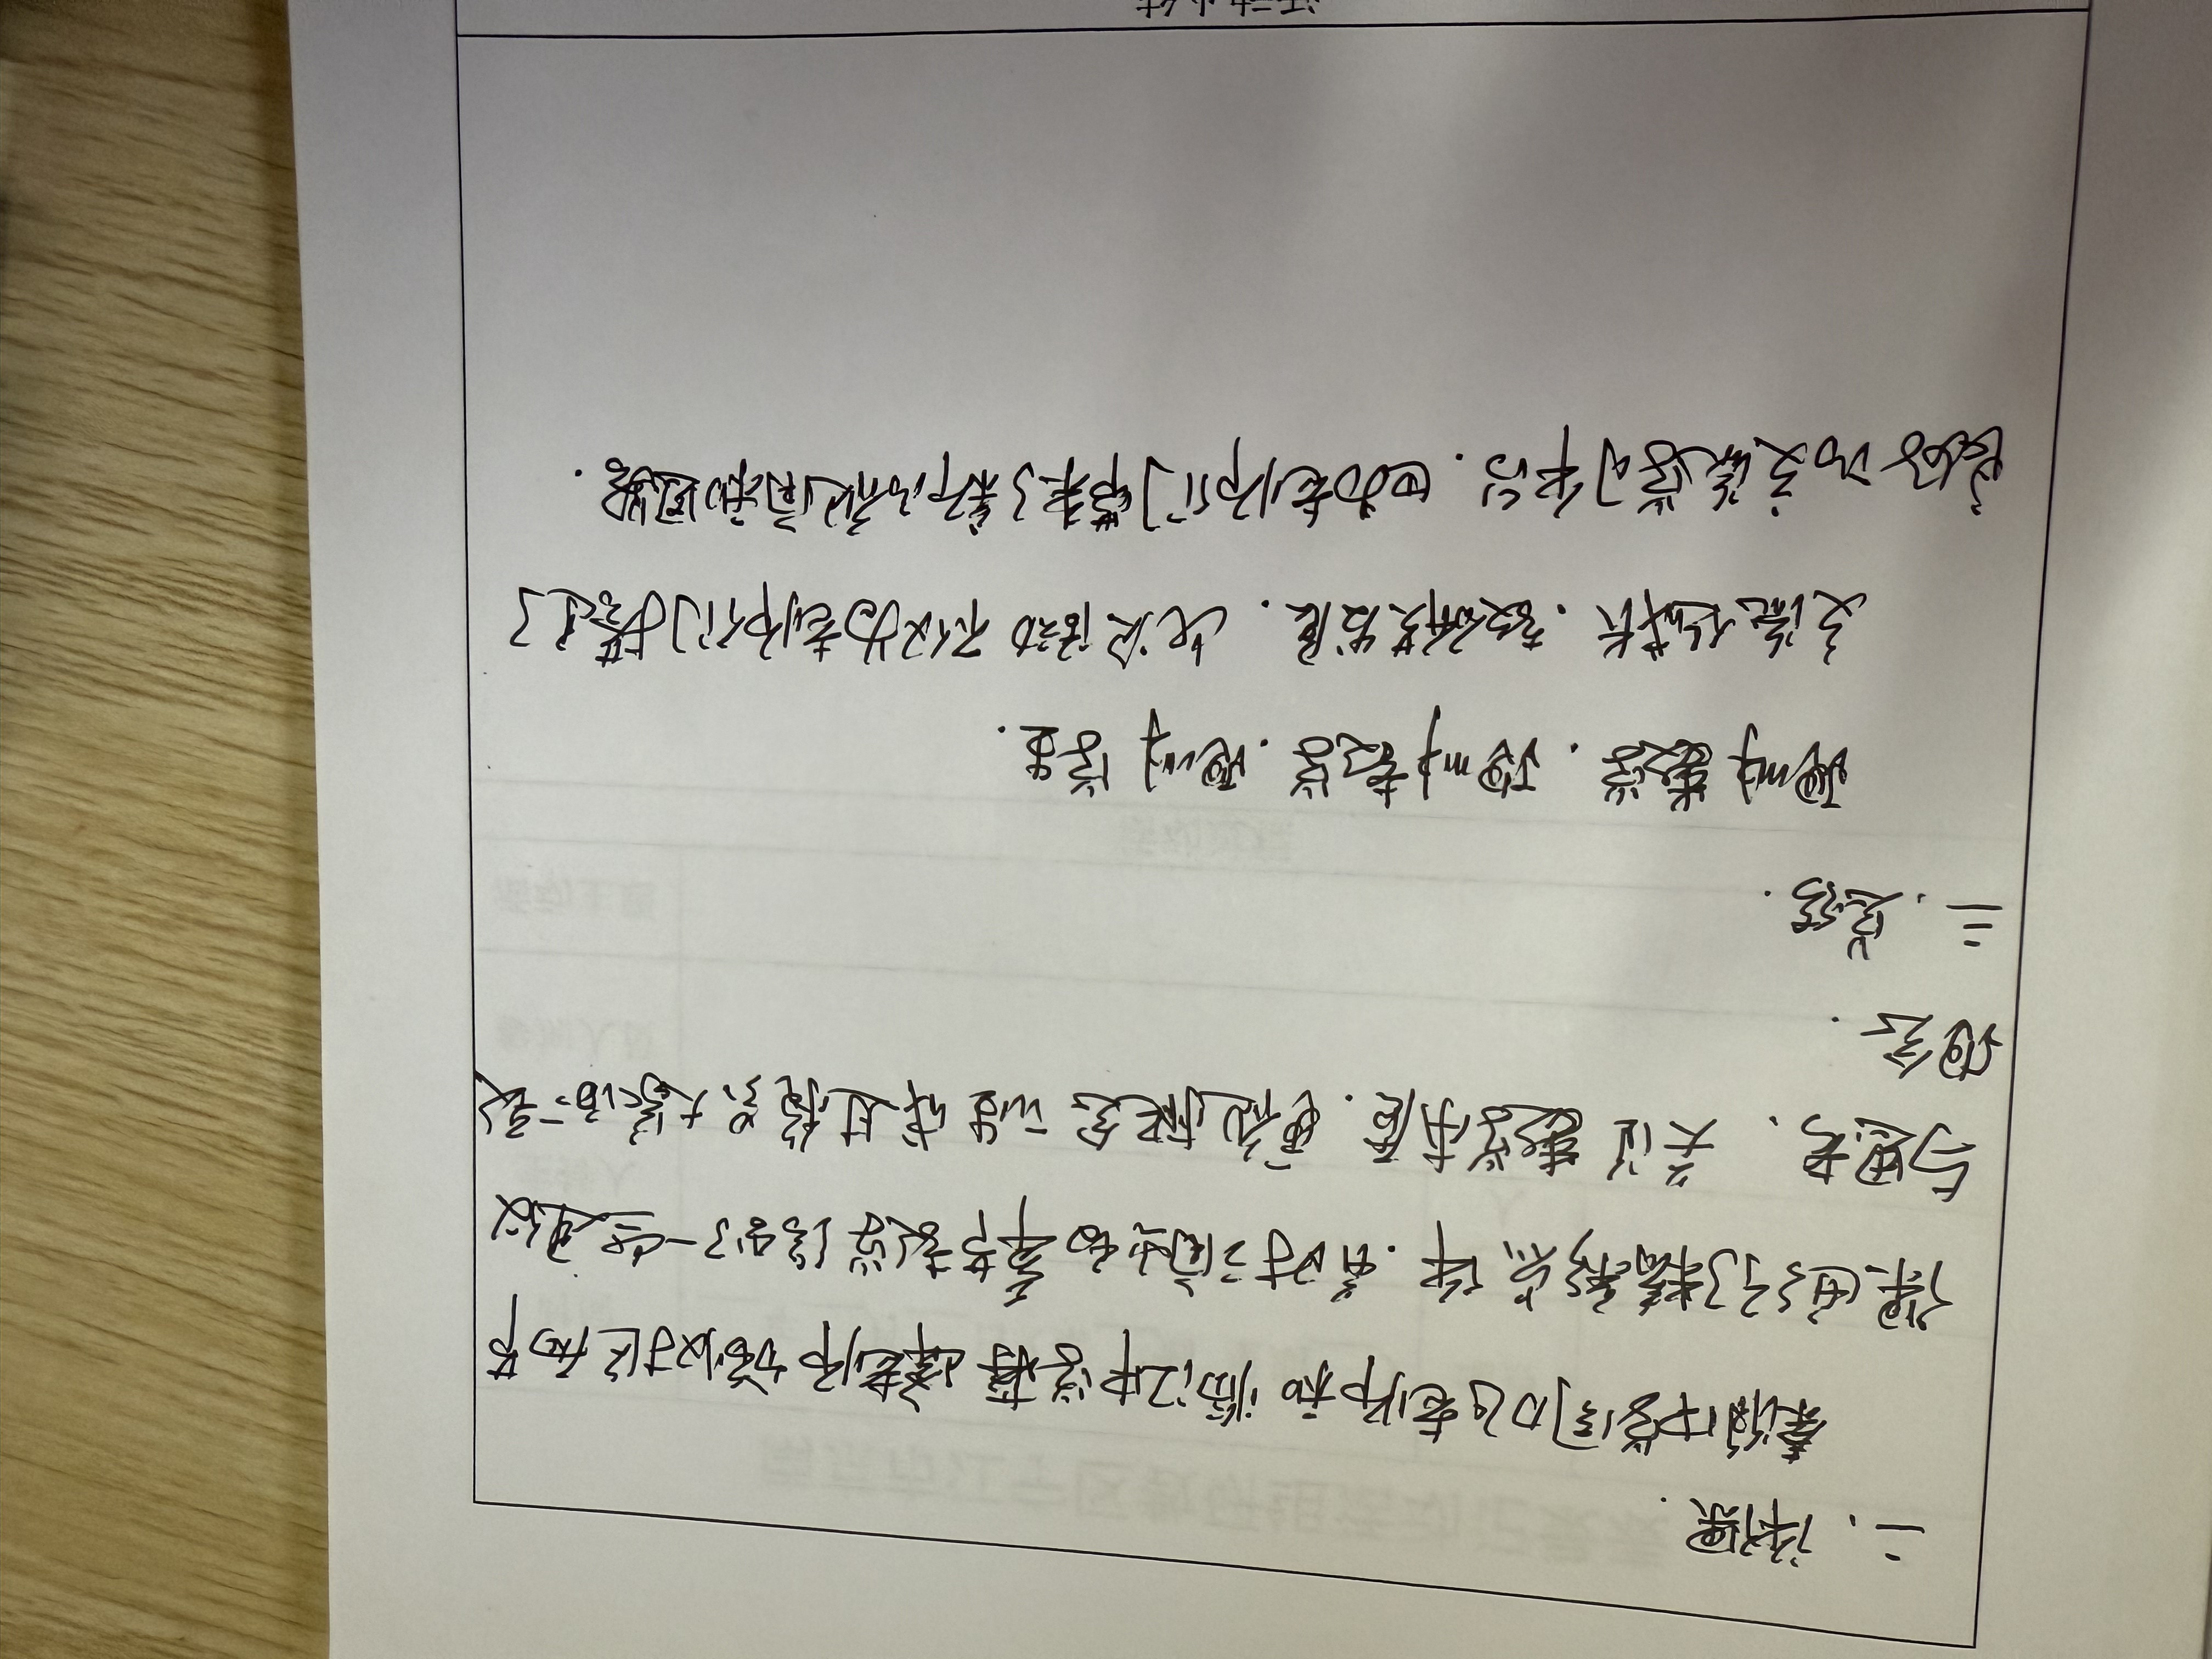 二、评课.
秦淮中学周力飞老师和临江中学蒋峰老师分别对这两节
课进行了精彩点评.并对三角函数章节教学给出了一些建议
与思考、关注数学本质.重视概念的生成过程是大家的一致
理念.
三.总结.
理解数学.理解教学.理解学生.
交流促成长.教研共发展.此次活动不仅为老师们搭建了
良好的交流学习平台.也为老师们带来了新的视角和思路.
活动小结